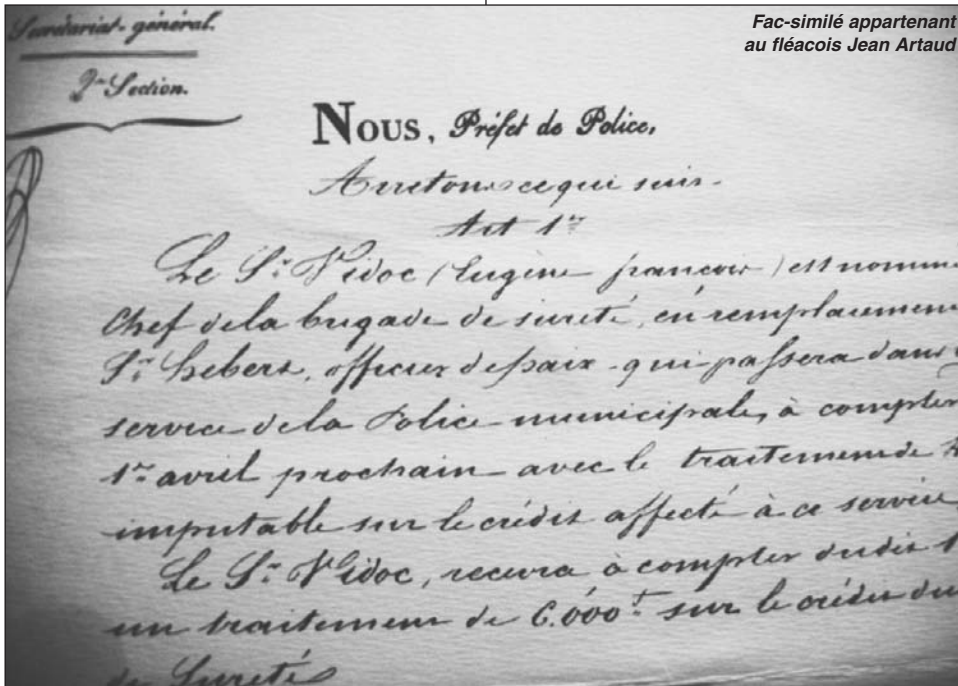 Secrétariat-général.
2me Section.
Fac-similé appartenant
au fléacois Jean Artaud
NOUS, Préfet de Police,
Arretons ce qui suit.
Art 1er
Le Sr. Vidoc (Eugène françois) est nomm
Chef de la brigade de sureté, en remplacemen
Sr. hebert, officier de paix qui passera dans
service de la Police municipale, à compter
1er avril prochain avec le traitement de
imputable sur le crédit affecté à ce service
Le Sr. Vidoc, recevra à compter dudit 1
un traitement de 6.000f. sur le crédit du
de Sureté